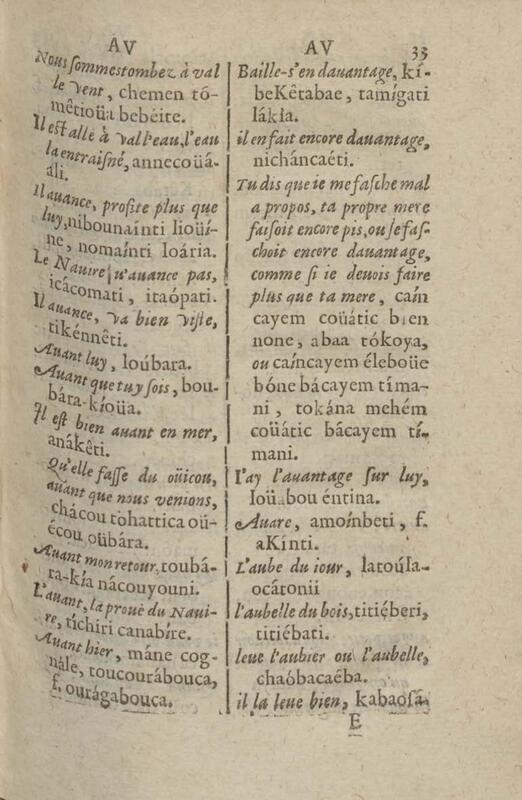 AV
Nous sommestombez à val
le vent, chemen tó-
mêtioüa bebéite.
Il est allé à val l'eau, l'eau
la entraisné, annecoüá-
áli.
Il auance, profite plus que
luy, nibounaínti lioüí-
ne, nomaínti loária.
Le Nauire n'auance pas,
icácomati, itaópati.
Il auance, va bien viste,
tikénnêti.
Auant luy, loúbara.
Auant que tuy sois, bou-
bára-kíoüa.
Il est bien auant en mer,
anákêti.
Qu'elle fasse du oüicou,
auant que nous venions,
chácou tohattica oü-
écou oübára.
Auant mon retour, toubá-
ra-kía nácouyouni.
L'auant, la prouë du Naui-
re, tíchiri canabíre.
Auant hier, máne cog-
nále, toucourábouca,
f. ourágabouca.
AV
33
Baille-s'en dauantage, kí-
beKêtabae, tamígati
lákia.
il en fait encore dauantage,
nicháncaéti.
Tu dis que ie me fasche mal
a propos, ta propre mere
faisoit encore pis, ou se fas-
choit encore dauantage,
comme si ie deuois faire
plus que ta mere, caín
cayem coüátic bien
none, abaa tókoya,
ou caíncayem éleboüe
bóne bácayem tíma-
ni, tokána mehém
coüátic bácayem tí-
mani.
I'ay l'auantage sur luy,
loüabou éntina.
Auare, amoínbeti, f.
aKínti.
L'aube du iour, latoúla-
ocátonii
l'aubelle du bois, titiéberi,
titiébati.
leue l'aubier ou l'aubelle,
chaóbacaéba.
il la leue bien, kabaosá-
E